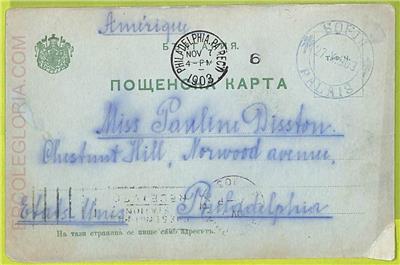 Amérique
БЪЛГАРИЯ.
ПОЩЕНСКА КАРТА
PHILADELPHIA, PA. REC'D
NOV 7
4-PM
1903
6
SOFIA
PALAIS
Miss Pauline Disston
Chestnut Hill, Norwood avenue,
Philadelphia
Etats Unis
На тази страница се пише само адресътъ.
TROCLEGLORIA.COM